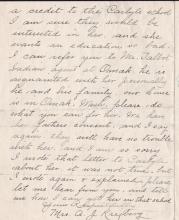 a credit to the Carlyle school
I am sure they would be
interested in her. and she
wants an education so bad.
I can refer you to Mr. Talbot
Indian agent at Omak. he is
acquainted with her personally
and his family. our home
is in Omak. Wash, please do
what you can for her. We han
her father's consent. and I say
again they will have no trouble
with her. and I am so sorry
I wrote that letter to Carlyle
about her. it was not kind. but
I wrote again & explained. please
let me hear from you. and tell
me how I may get her in that school
Mrs. A. J.